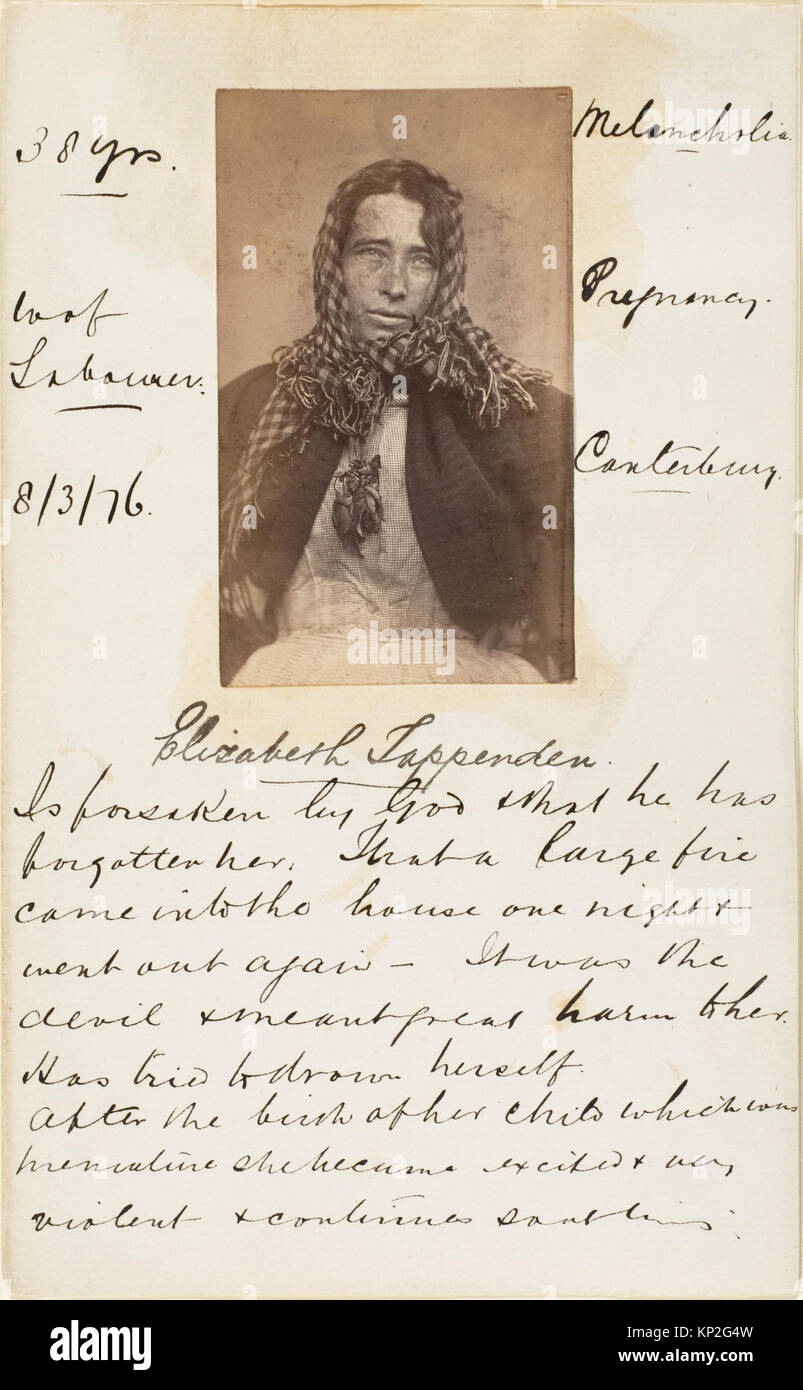 38 yrs.
w of
Labourer.
8/3/76.
Melancholia.
Pregnancy.
Canterbury.
Elizabeth Tappenden.
Is forsaken by God & that he has
forgotten her. That a large fire
came into the house one night &
went out again – It was the
devil & meant great harm to her.
Has tried to drown herself.
After the birth of her child which was
premature she became excited & very
violent & continues
a alamy stock photo
KP2G4W
www.alamy.com